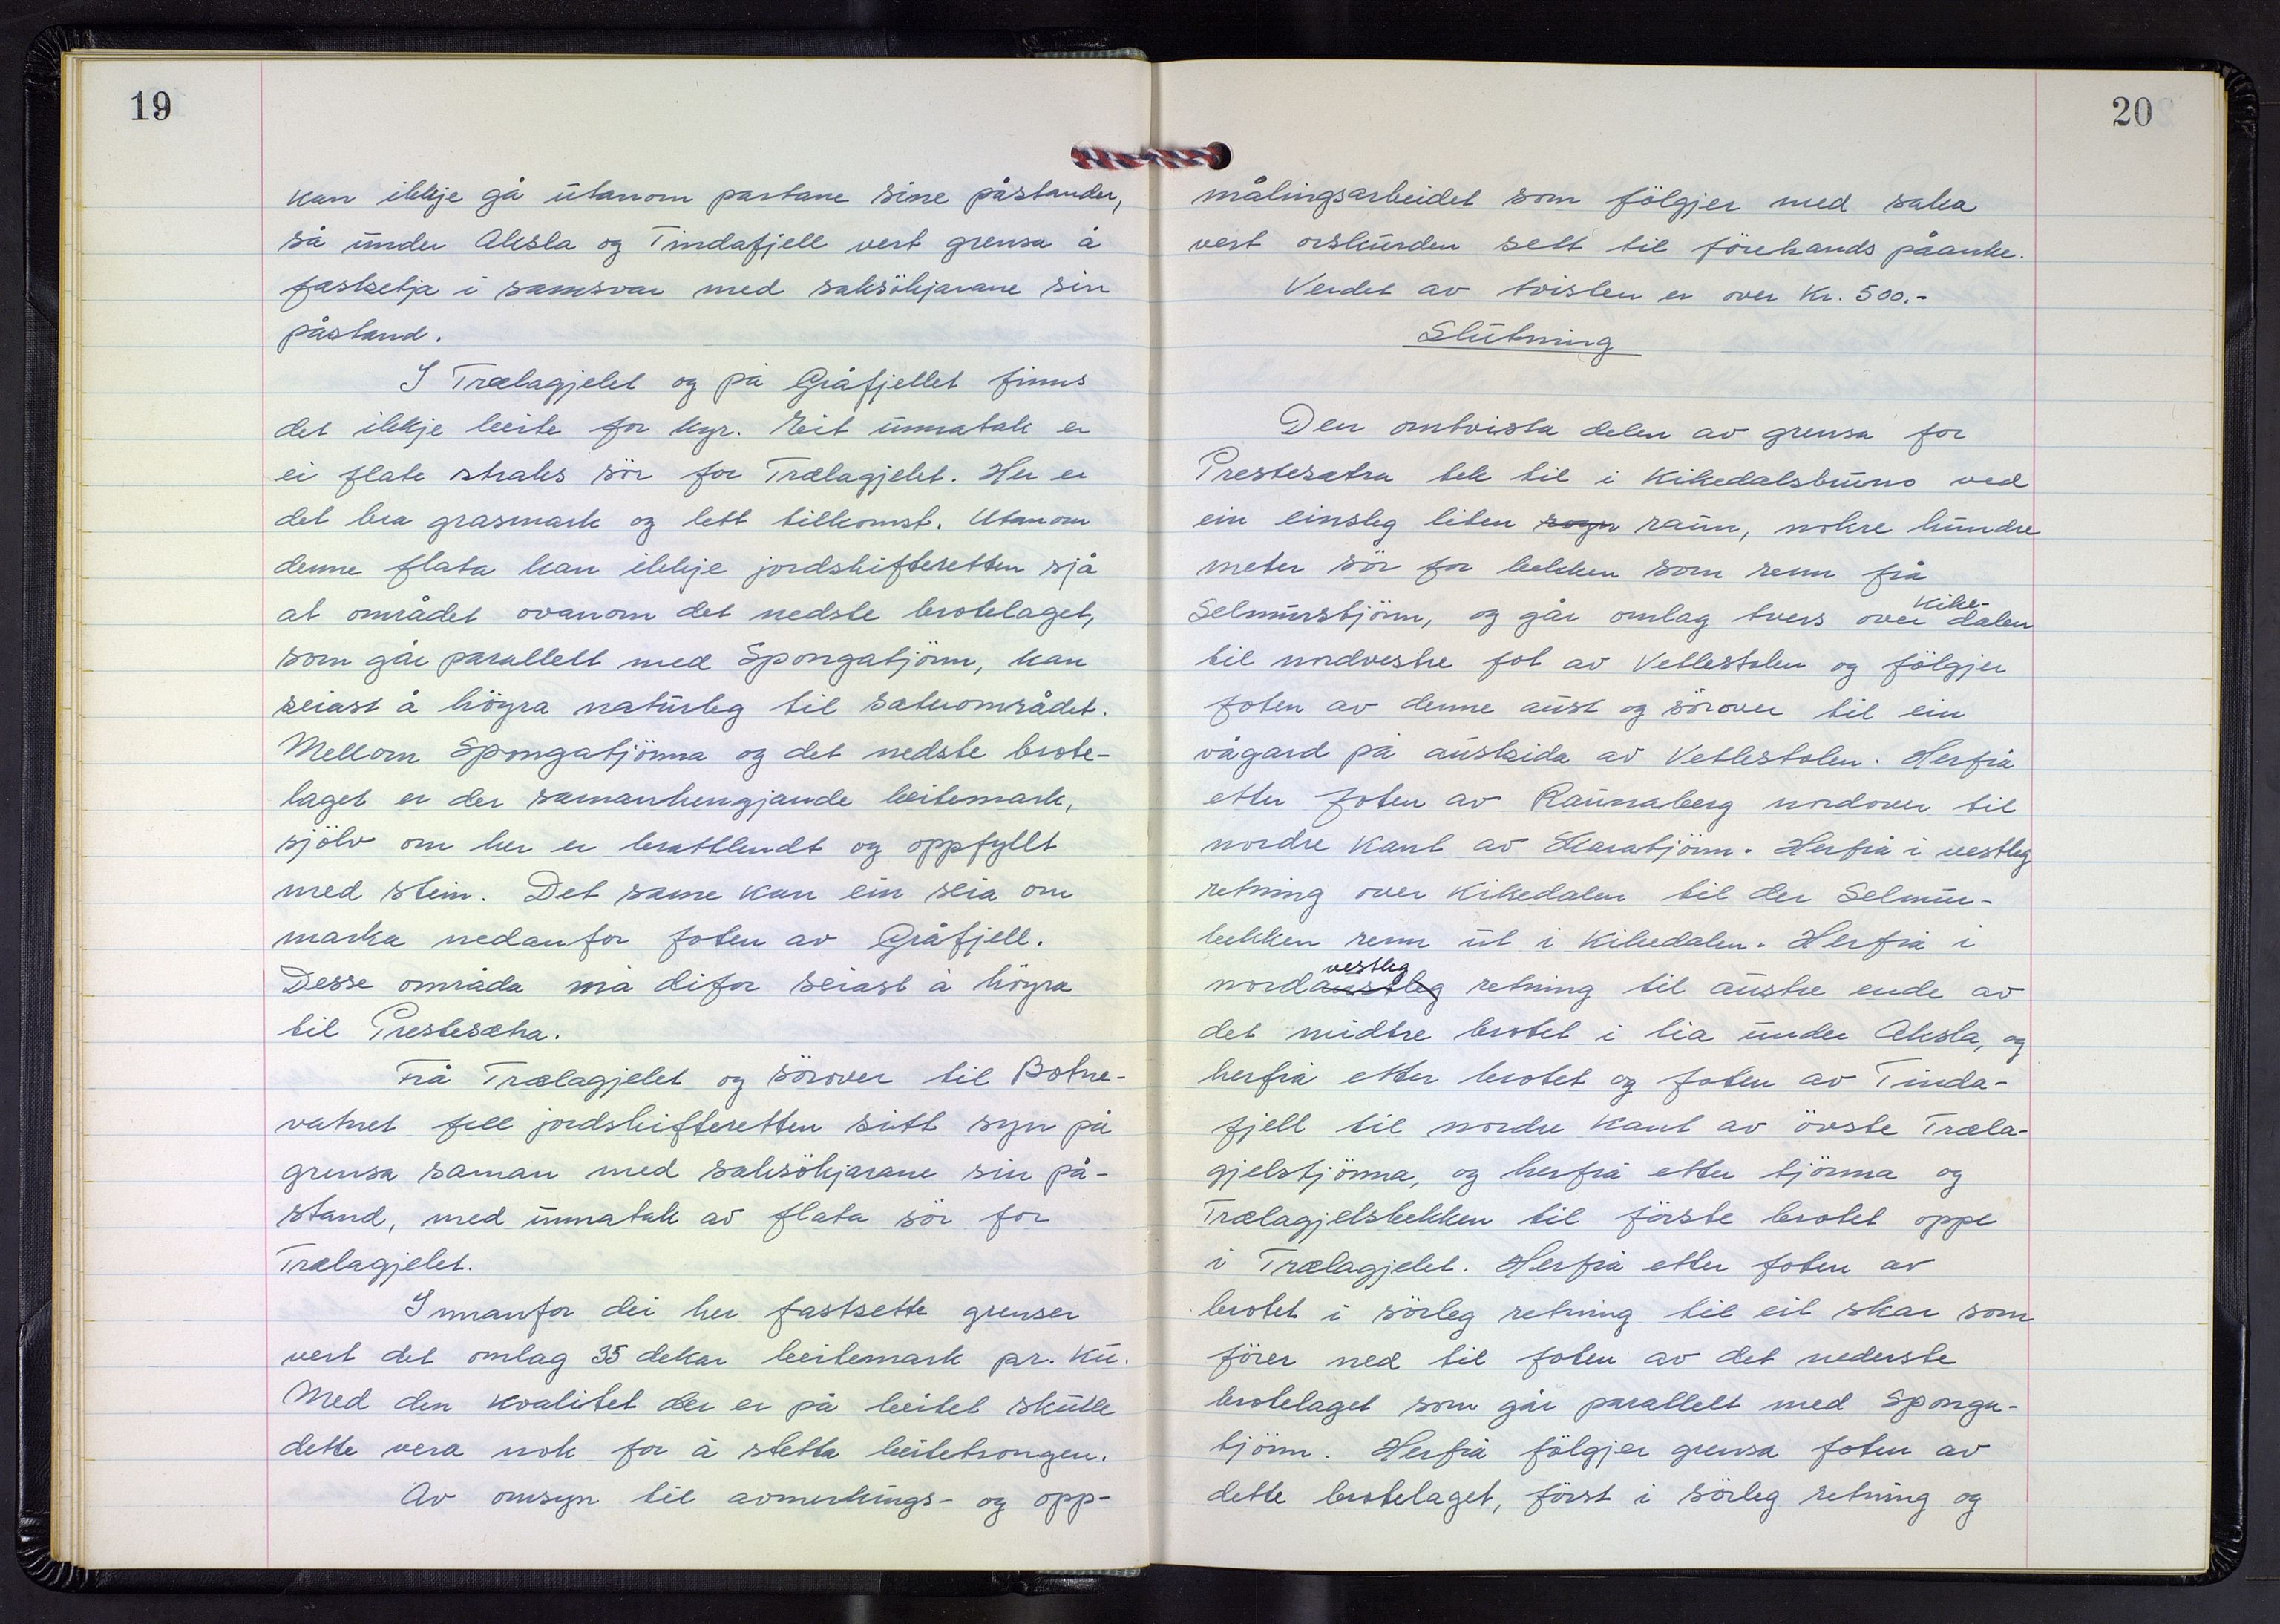 19
kan ikkje gå utanom partane sine påstander,
så under Aksla og Tindafjell vert grensa å
fastsetja i samsvar med saksökjarane sin
påstand.
I Trælagjelet og på Gråfjellet finns
det ikkje beite for kyr. Eit unnatak er
ei flate straks sör for Trælagjelet. Her er
det bra grasmark og lett tilkomst. Utanom
denne flata kan ikkje jordskifteretten sjå
at området ovanom det nedste brotelaget,
som går parallelt med Spongatjönn, kan
seiast å höyra naturleg til sæterområdet.
Mellom Spongatjönna og det nedste brote-
laget er der samanhengjande beitemark,
sjölv om her er brattlendt og oppfyllt
med stein. Det same kan ein seia om
marka nedanfor foten av Gråfjell.
Desse områda må difor seiast å höyra
til Prestesætra.
Frå Trælagjelet og sörover til Botne-
vatnet fell jordskifteretten sitt syn på
grensa saman med saksökjarane sin på-
stand, med unnatak av flata sör for
Trælagjelet.
Innanfor dei her fastsette grenser
vert det omlag 35 dekar beitemark pr. ku.
Med den kvalitet der er på beitet skulle
dette vera nok for å stetta beitetrongen.
Av omsyn til avmerkings- og opp-
20
målingsarbeidet som fölgjer med saka
vert orskurden sett til förehands påanke.
Verdet av tvisten er over Kr. 500.-
Slutning
Den omtvista delen av grensa for
Prestesætra tek til i Kikedalsbruno ved
ein einsleg liten rogn raun, nokre hundre
meter sör for bekken som renn frå
Selmurstjönn, og går omlag tvers over Kike-dalen
til nordvestre fot av Vetlestolen og fölgjer
foten av denne aust og sörover til ein
vågard på austsida av Vetlestolen. Herfrå
etter foten av Raunaberg nordover til
nordre kant av Skaratjönn. Herfrå i vestleg
retning over Kikedalen til der Selmur-
bekken renn ut i Kikedalen. Herfrå i
nordaustleg vestleg retning til austre ende av
det midtre brotet i lia under Aksla, og
herfrå etter brotet og foten av Tinda-
fjell til nordre kant av övste Træla-
gjelstjönna, og herfrå etter tjönna og
Trælagjelsbekken til förste brotet oppe
i Trælagjelet. Herfrå etter foten av
brotet i sörleg retning til eit skar som
förer ned til foten av det nederste
brotelaget som går parallelt med Sponga-
tjönn. Herfrå fölgjer grensa foten av
dette brotelaget, först i sörleg retning og